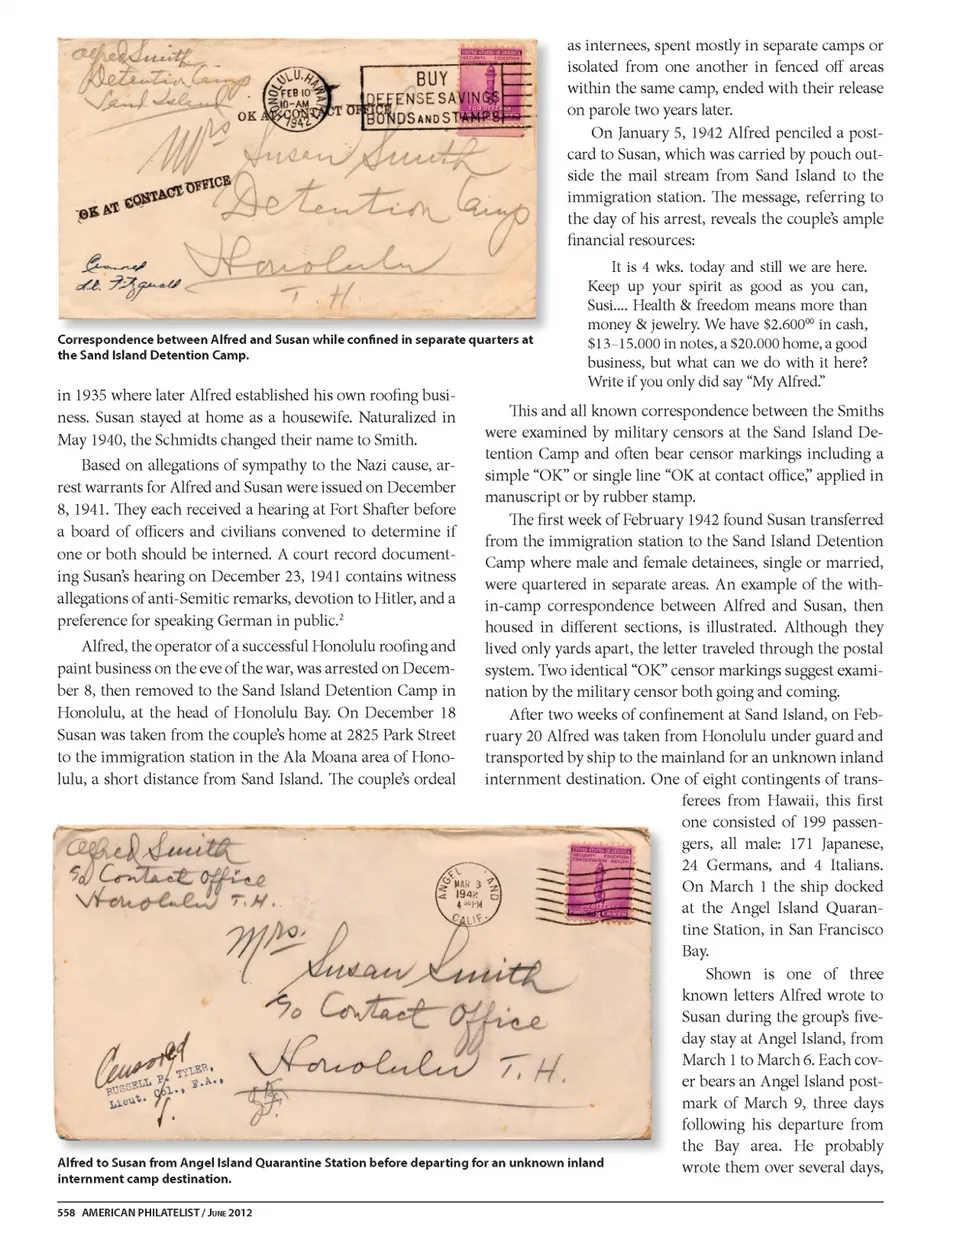 Alfred Smith
Detention Camp
Sand Island
HONOLULU, HAWAII
FEB 10
10-AM
1942
BUY
DEFENSE SAVINGS
BONDS AND STAMPS
OK AT CONTACT OFFICE
Mrs Susan Smith
OK AT CONTACT OFFICE
Detention Camp
Honolulu
T. H.
Censored
Lt. Fitzgerald
Correspondence between Alfred and Susan while confined in separate quarters at
the Sand Island Detention Camp.
in 1935 where later Alfred established his own roofing busi-
ness. Susan stayed at home as a housewife. Naturalized in
May 1940, the Schmidts changed their name to Smith.
Based on allegations of sympathy to the Nazi cause, ar-
rest warrants for Alfred and Susan were issued on December
8, 1941. They each received a hearing at Fort Shafter before
a board of officers and civilians convened to determine if
one or both should be interned. A court record document-
ing Susan's hearing on December 23, 1941 contains witness
allegations of anti-Semitic remarks, devotion to Hitler, and a
preference for speaking German in public.2
Alfred, the operator of a successful Honolulu roofing and
paint business on the eve of the war, was arrested on Decem-
ber 8, then removed to the Sand Island Detention Camp in
Honolulu, at the head of Honolulu Bay. On December 18
Susan was taken from the couple's home at 2825 Park Street
to the immigration station in the Ala Moana area of Hono-
lulu, a short distance from Sand Island. The couple's ordeal
as internees, spent mostly in separate camps or
isolated from one another in fenced off areas
within the same camp, ended with their release
on parole two years later.
On January 5, 1942 Alfred penciled a post-
card to Susan, which was carried by pouch out-
side the mail stream from Sand Island to the
immigration station. The message, referring to
the day of his arrest, reveals the couple's ample
financial resources:
It is 4 wks. today and still we are here.
Keep up your spirit as good as you can,
Susi.... Health & freedom means more than
money & jewelry. We have $2.60000 in cash,
$13–15.000 in notes, a $20.000 home, a good
business, but what can we do with it here?
Write if you only did say “My Alfred.”
This and all known correspondence between the Smiths
were examined by military censors at the Sand Island De-
tention Camp and often bear censor markings including a
simple “OK” or single line “OK at contact office,” applied in
manuscript or by rubber stamp.
The first week of February 1942 found Susan transferred
from the immigration station to the Sand Island Detention
Camp where male and female detainees, single or married,
were quartered in separate areas. An example of the with-
in-camp correspondence between Alfred and Susan, then
housed in different sections, is illustrated. Although they
lived only yards apart, the letter traveled through the postal
system. Two identical “OK” censor markings suggest exami-
nation by the military censor both going and coming.
After two weeks of confinement at Sand Island, on Feb-
ruary 20 Alfred was taken from Honolulu under guard and
transported by ship to the mainland for an unknown inland
internment destination. One of eight contingents of trans-
ferees from Hawaii, this first
one consisted of 199 passen-
gers, all male: 171 Japanese,
24 Germans, and 4 Italians.
On March 1 the ship docked
at the Angel Island Quaran-
tine Station, in San Francisco
Bay.
Shown is one of three
known letters Alfred wrote to
Susan during the group's five-
day stay at Angel Island, from
March 1 to March 6. Each cov-
er bears an Angel Island post-
mark of March 9, three days
following his departure from
the Bay area. He probably
wrote them over several days,
Alfred Smith
c/o Contact Office
Honolulu T. H.
MAR 9
1942
CALIF.
Mrs.
Susan Smith
c/o Contact Office
Honolulu T. H.
Censored
RUSSELL P. TYLER,
Lieut. Col., F.A.,
Alfred to Susan from Angel Island Quarantine Station before departing for an unknown inland
internment camp destination.
558 AMERICAN PHILATELIST / JUNE 2012